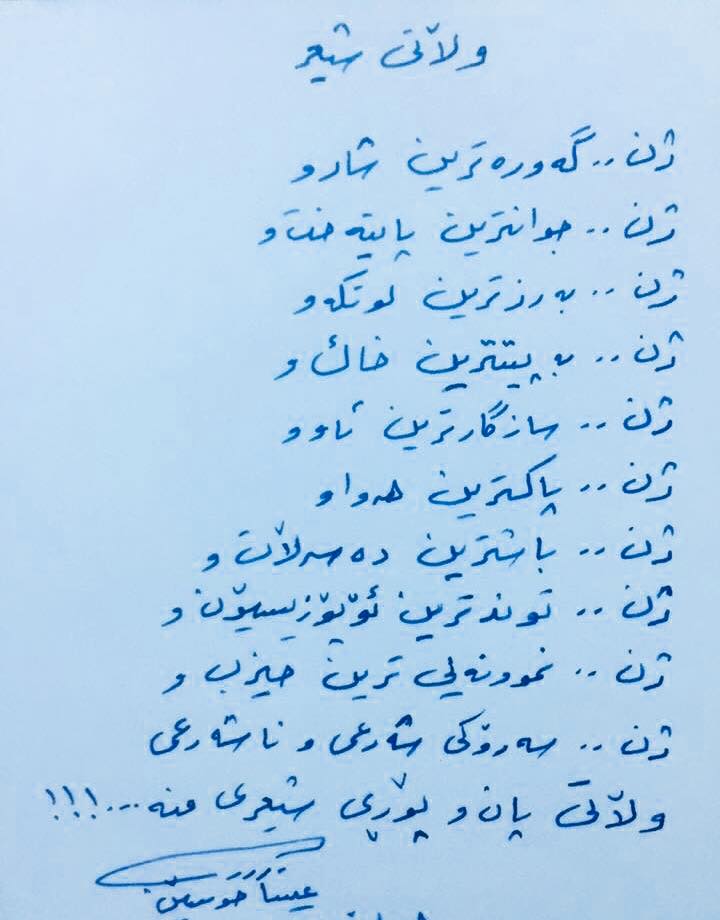 ولآتى شيعر
ژن.. گەورەترين شارو
ژن.. جوانترين پايتەختو
ژن.. بەرزترين لوتكەو
ژن.. بەپيتترين خاك و
ژن.. سازگارترين ئاوو
ژن.. پاكترين هەواو
ژن.. باشترين دەسەلآت و
ژن.. توندترين ئۆپۆزيسيۆن و
ژن.. نموونەيى ترين حيزب و
ژن.. سەرۆكى شەرعى و ناشەرعى
ولآتى پان و پۆڕى شيعرى منە...!!!
حوسێن